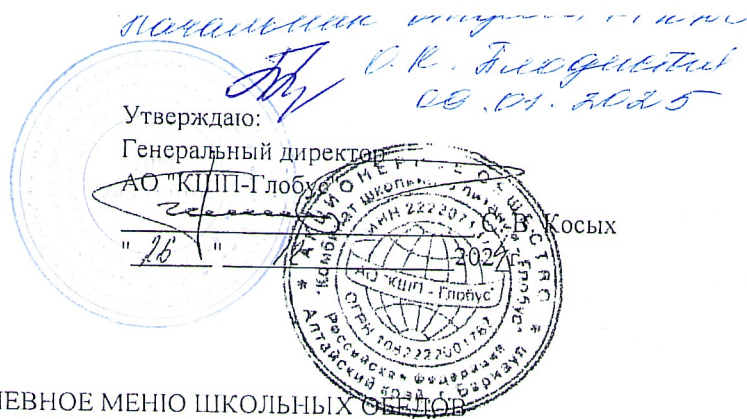 Начальник отдела
О.К.
09.01.2025
Утверждаю:
Генеральный директор
АО "КШП-Глобус"
С. В. Косых
" 26 " 202 г.
АКЦИОНЕРНОЕ ОБЩЕСТВО
"Комбинат школьного питания - Глобус"
ИНН 2222071
АО "КШП - Глобус"
ОГРН 1082222001767
Российская Федерация
Алтайский край г. Барнаул
ЕВНОЕ МЕНЮ ШКОЛЬНЫХ ОБЕДОВ